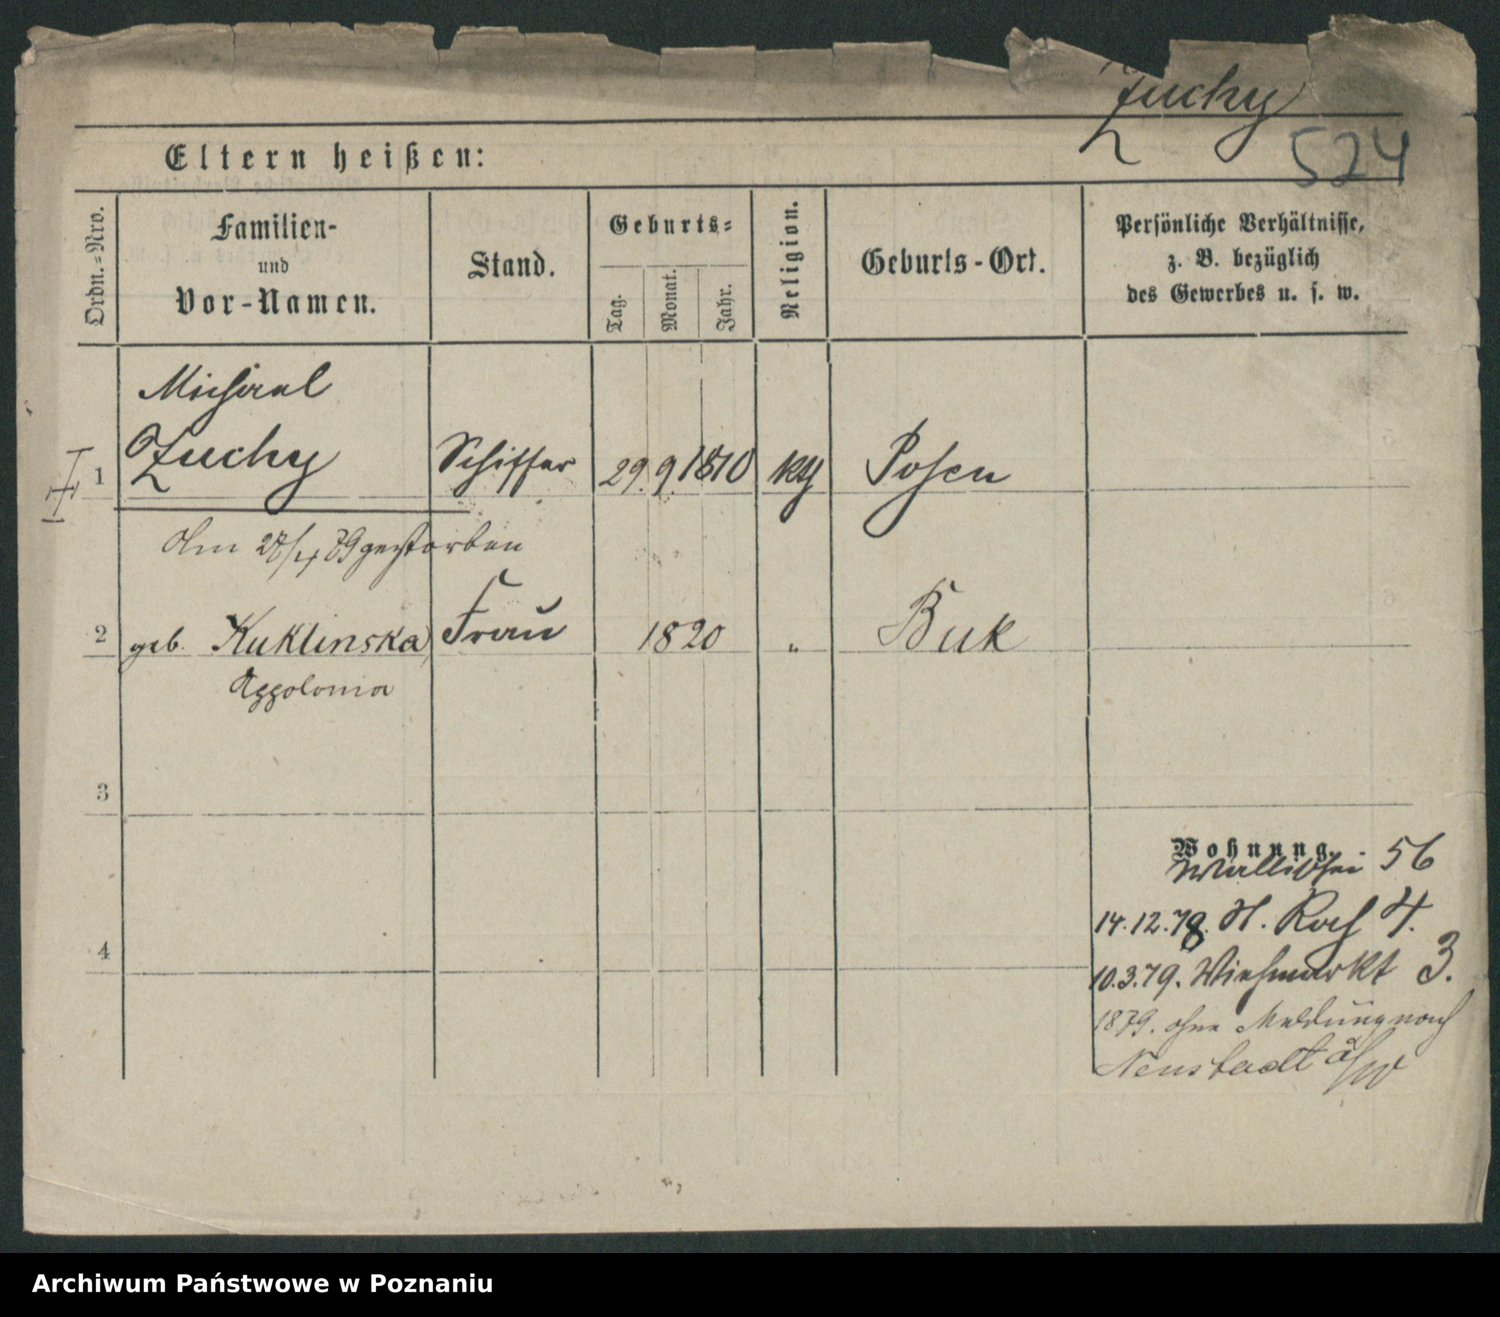 Zuchy
524
Eltern heißen:
Ordn.-Nro.
Familien-
und
Vor-Namen.
Stand.
Geburts-
Tag.
Monat.
Jahr.
Religion.
Geburts-Ort.
Persönliche Verhältnisse,
z. B. bezüglich
des Gewerbes u. s. w.
Michael
1 Zuchy Schiffer 29. 9. 1810 kth Posen
Am 28/4 79 gestorben
2 geb. Kuklinska Frau 1820 " Buk
Appolonia
3
Wohnung.
Wallischei 56
14.12.78. St. Roch 4.
4
10.3.79. Viehmarkt 3.
1879. ohne Meldung nach
Neustadt a/W
Archiwum Państwowe w Poznaniu